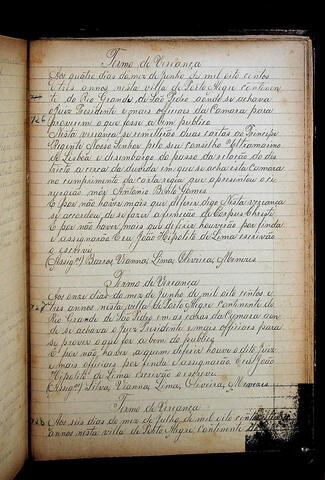 Termo de Veriança
Aos quatro dias do mez de Junho de mil oito centos
e tres annos nesta villa de Porto Alegre continen
te do Rio Grande de São Pedro aonde se achava
o Juiz Presidente e mais officiaes da Camara para
proverem o que fosse a bem publico
726
Nesta veriança se remetterão duas cartas ao Principe
Regente Nosso Senhor pelo seu conselho Ultramarino
de Lisbôa e desembargo do passo da relação do dis
tricto a cerca da duvida em que se acha esta Camara
no cumprimento da carta regia que apresentou o ci
rurgião mór Antonio Bento Gomes
E por não haver mais que diferir digo Nesta veriança
se accordou de se fazer a funcção de Corpus Christi
E por não haver mais que deferir houverão por finda
e assignarão Eu João Hipolito de Lima escrivão
o escrevi
(Assigos) Barros, Vianna, Lima, Oliveira, Menezes
Termo de Veriança
727
Aos onze dias do mez de Junho de mil oito centos e
tres annos nesta villa de Porto Alegre Continente do
Rio Grande de São Pedro em as cazas da Camara aon
de se achava o Juiz Presidente e mais officiaes para
se prover o que for a bem do publico
E por não haver a quem deferir houve o dito Juiz
e mais officiaes por finda e assignarão Eu João
Hipolito de Lima escrivão o escrevi
(Assigos) Silva, Vianna, Lima, Oliveira, Menezes
Termo de Veriança
728
Aos seis dias do mez de Julho de mil oito centos e tres
annos nesta villa de Porto Alegre Continente do